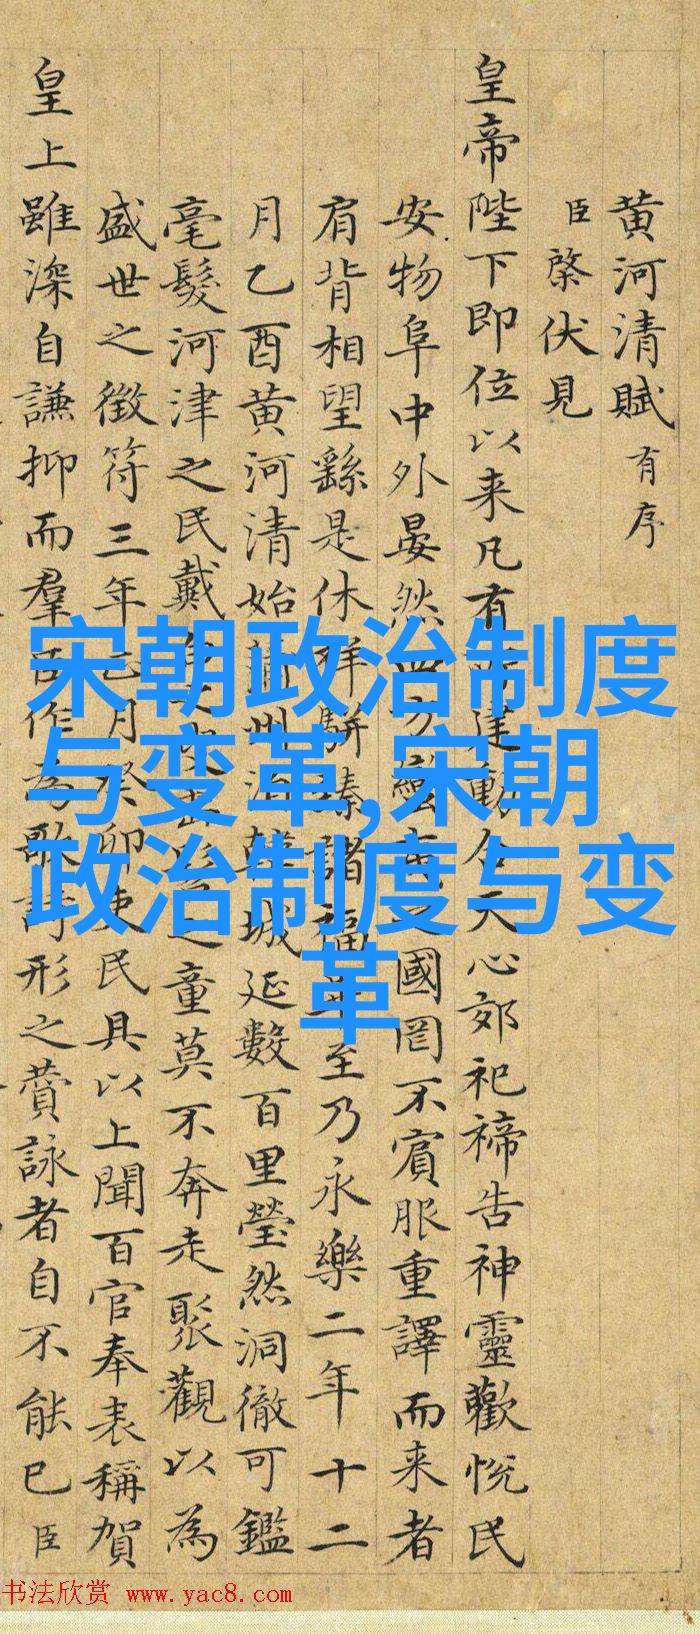 黄河清賦 有序
臣棨伏見
皇帝陛下即位以来凡有建動合天心郊祀禘告神靈歡悦民
安物阜中外晏然四方國罔不賓服重譯而来者
肩背相望繇是休祥駢臻諸福至乃永樂二年十二
月乙酉黄河清始蒲州城延數百里瑩然洞徹可鑑
毫髮河津之民戴之童莫不奔走聚觀以為
盛世之徵符三年月癸卯吏民具以上聞百官奉表稱賀
皇上雖深自謙抑而羣臣作為歌詩形之賛詠者自不能已臣
宋朝政治制度
与变革,宋朝
政治制度与变
革
书法欣赏 www.yac8.com